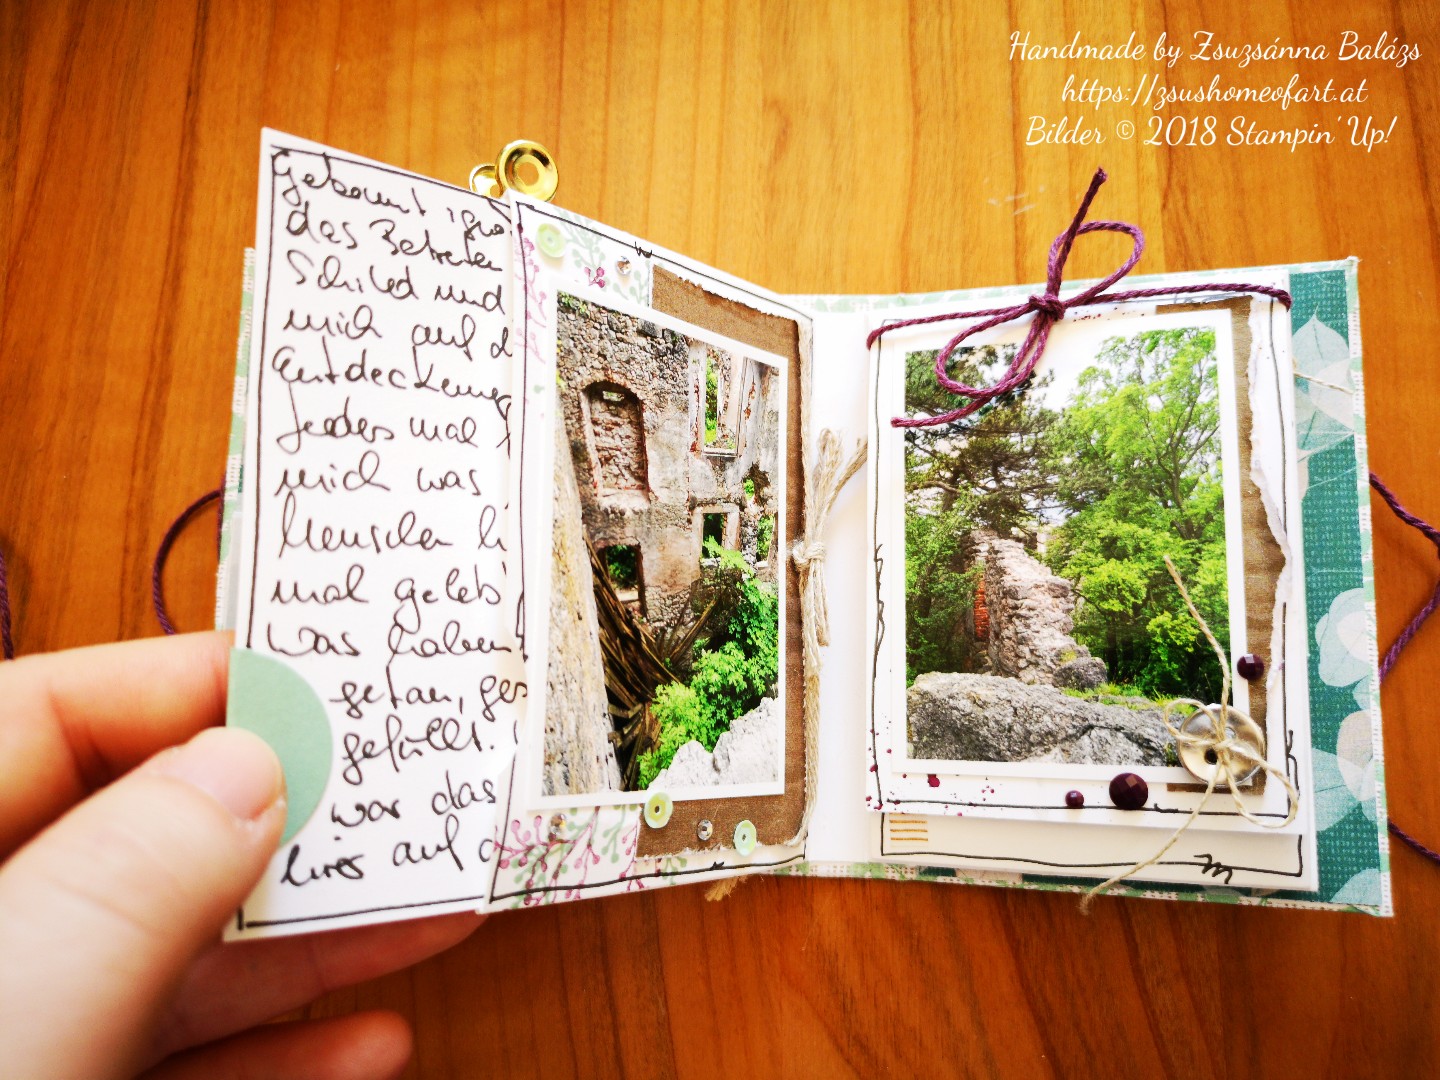 Handmade by Zsuzsánna Balázs
https://zsushomeofart.at
Bilder © 2018 Stampin' Up!
das Betreten
Schild und
mich auf d
Entdeckung
Jedes mal
mich was
Menschen h
mal geleb
was haben
getan, ges
gefühlt.
war das
hier auf